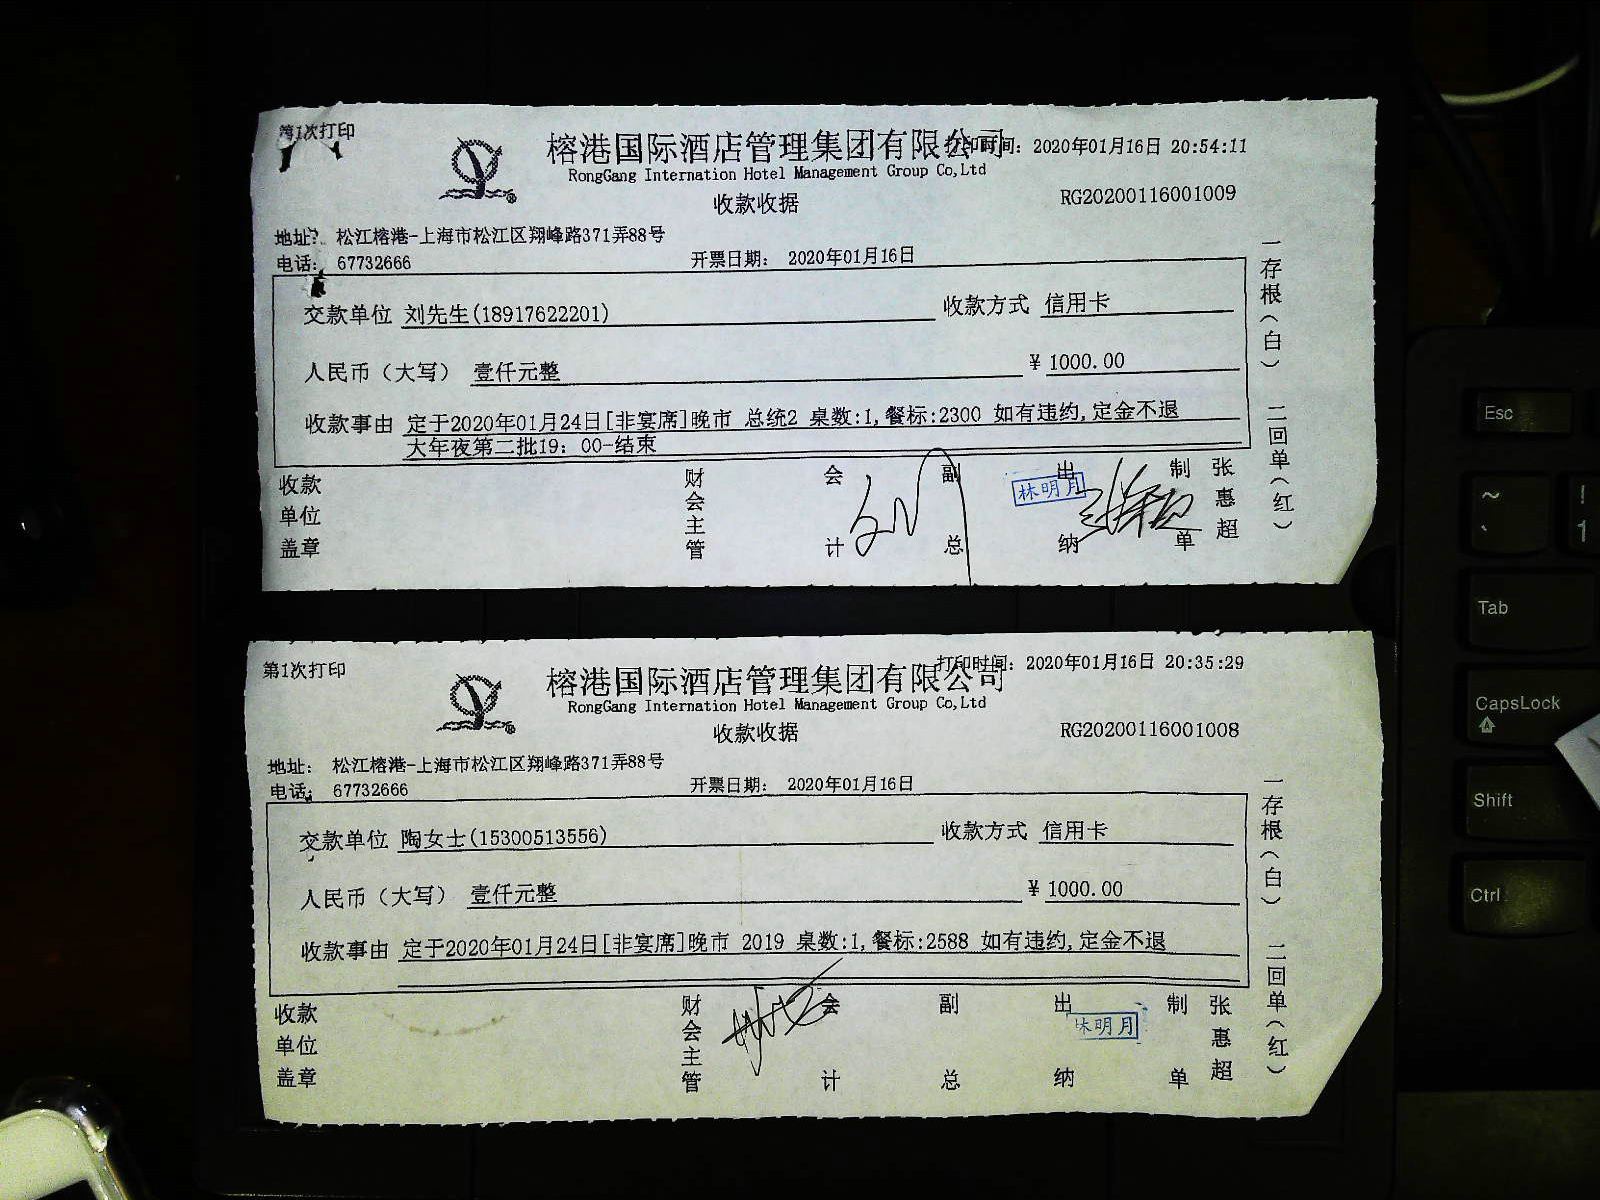 第1次打印
榕港国际酒店管理集团有限公司
打印时间: 2020年01月16日 20:54:11
RongGang Internation Hotel Management Group Co,Ltd
收款收据
RG20200116001009
地址: 松江榕港-上海市松江区翔峰路371弄88号
电话: 67732666
开票日期: 2020年01月16日
交款单位 刘先生(18917622201) 收款方式 信用卡
人民币（大写） 壹仟元整 ¥ 1000.00
收款事由 定于2020年01月24日[非宴席]晚市 总统2 桌数:1,餐标:2300 如有违约,定金不退
大年夜第二批19: 00-结束
收款单位盖章 财会主管 会计 副总 出纳 林明月 制单 张惠超
一存根（白） 二回单（红）
第1次打印
榕港国际酒店管理集团有限公司
打印时间: 2020年01月16日 20:35:29
RongGang Internation Hotel Management Group Co,Ltd
收款收据
RG20200116001008
地址: 松江榕港-上海市松江区翔峰路371弄88号
电话: 67732666
开票日期: 2020年01月16日
交款单位 陶女士(15300513556) 收款方式 信用卡
人民币（大写） 壹仟元整 ¥ 1000.00
收款事由 定于2020年01月24日[非宴席]晚市 2019 桌数:1,餐标:2588 如有违约,定金不退
收款单位盖章 财会主管 会计 副总 出纳 林明月 制单 张惠超
一存根（白） 二回单（红）
Esc
~ `
! 1
Tab
CapsLock
Shift
Ctrl